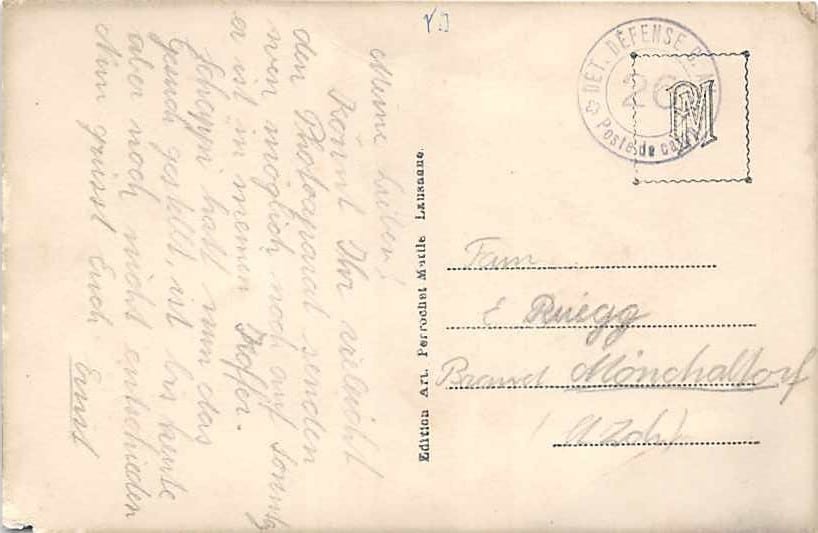 Meine Lieben!
Könnt Ihr vielleicht
den Photoaparat senden
wen möglich noch auf Sonntg
er ist in meinem Koffer.
hatt nun das
Gesuch gestellt, ist bis heute
aber noch nicht entschieden
Nun grüsst Euch Ernst
Edition Art. Perrochet Matile Lausanne.
DÉT. DÉFENSE
26
Poste de
PM
Fam
E Rüegg
Mönchaltorf
(Kt Zch)